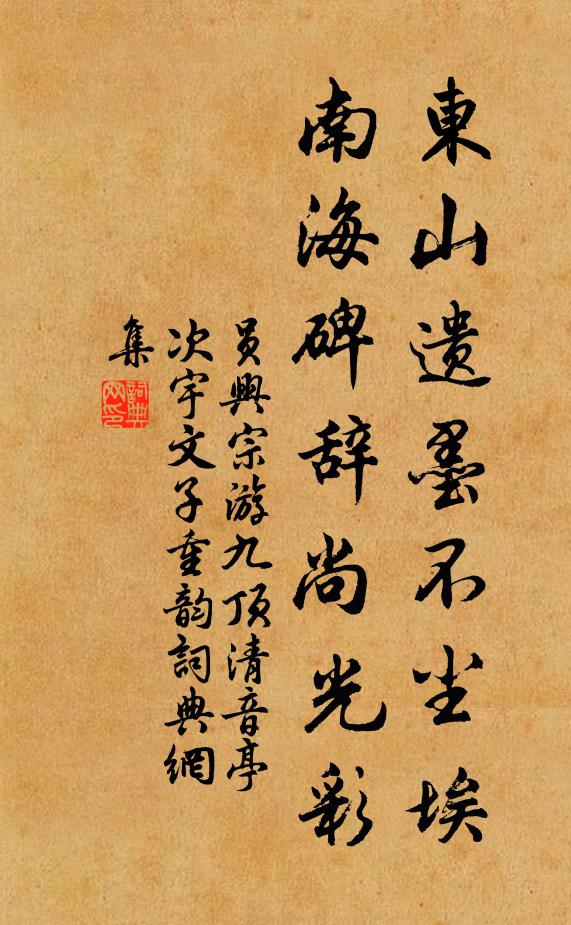 東山遺墨不尘埃
南海碑辞尚光彩
員興宗游九顶清音亭
次宇文子重韵詞典網
集
詞典網印